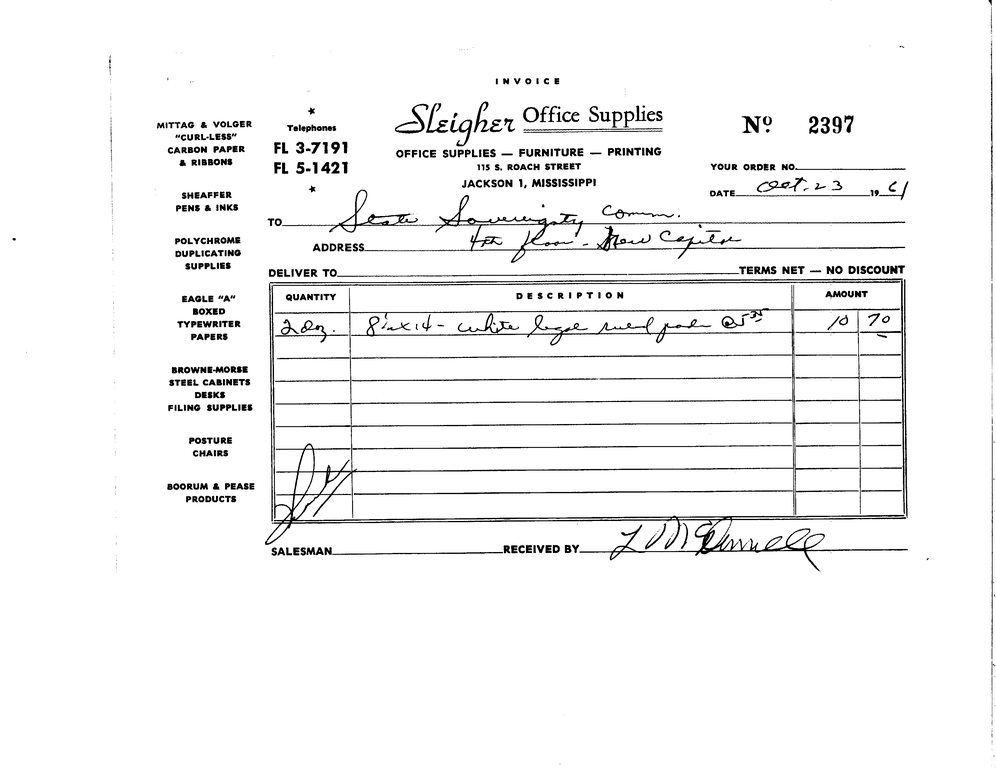 INVOICE
MITTAG & VOLGER
"CURL-LESS"
CARBON PAPER
& RIBBONS
SHEAFFER
PENS & INKS
POLYCHROME
DUPLICATING
SUPPLIES
EAGLE "A"
BOXED
TYPEWRITER
PAPERS
BROWNE-MORSE
STEEL CABINETS
DESKS
FILING SUPPLIES
POSTURE
CHAIRS
BOORUM & PEASE
PRODUCTS
Telephones
FL 3-7191
FL 5-1421
Sleigher Office Supplies
OFFICE SUPPLIES — FURNITURE — PRINTING
115 S. ROACH STREET
JACKSON 1, MISSISSIPPI
Nº 2397
YOUR ORDER NO.
DATE Oct. 23 1961
TO State Sovereignty Comm.
ADDRESS 4th floor - New Capitol
DELIVER TO TERMS NET — NO DISCOUNT
QUANTITY DESCRIPTION AMOUNT
2 doz. 8½ x 14 - white legal ruled pads @ 5 35 10 70
SALESMAN RECEIVED BY L McDonnell